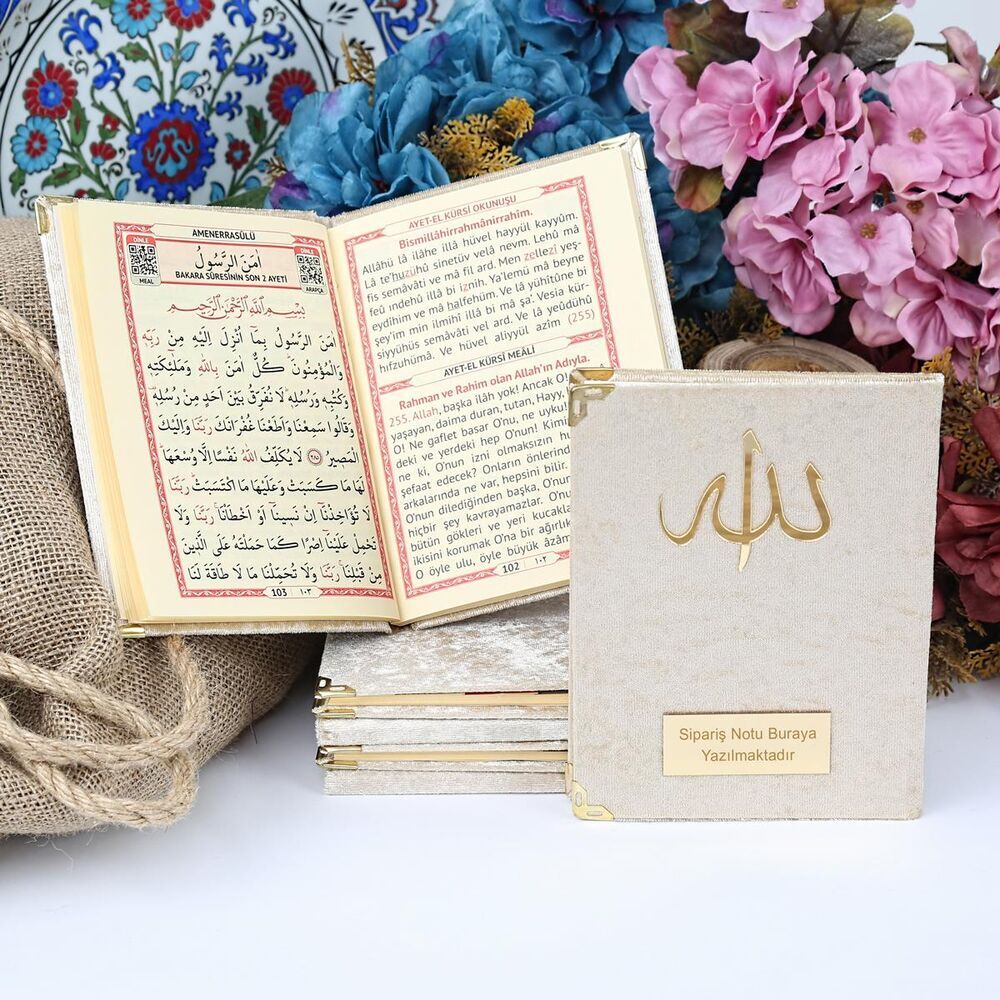 AMENERRASÛLÜ
DİNLE
اٰمَنَ الرَّسُولُ
DİNLE
MEAL
BAKARA SÛRESİNİN SON 2 AYETİ
ARAPÇA
بِسْمِ اللّٰهِ الرَّحْمٰنِ الرَّحِيمِ
اٰمَنَ الرَّسُولُ بِمَٓا اُنْزِلَ اِلَيْهِ مِنْ رَبِّهٖ
وَالْمُؤْمِنُونَ كُلٌّ اٰمَنَ بِاللّٰهِ وَمَلٰٓئِكَتِهٖ
وَكُتُبِهٖ وَرُسُلِهٖ لَا نُفَرِّقُ بَيْنَ اَحَدٍ مِنْ رُسُلِهٖ
وَقَالُوا سَمِعْنَا وَاَطَعْنَا غُفْرَانَكَ رَبَّنَا وَاِلَيْكَ
الْمَصِيرُ ﴿٢٨٥﴾ لَا يُكَلِّفُ اللّٰهُ نَفْسًا اِلَّا وُسْعَهَا
لَهَا مَا كَسَبَتْ وَعَلَيْهَا مَا اكْتَسَبَتْ رَبَّنَا
لَا تُؤَاخِذْنَٓا اِنْ نَسِينَٓا اَوْ اَخْطَاْنَا رَبَّنَا وَلَا
تَحْمِلْ عَلَيْنَٓا اِصْرًا كَمَا حَمَلْتَهُ عَلَى الَّذِينَ
مِنْ قَبْلِنَا رَبَّنَا وَلَا تُحَمِّلْنَا مَا لَا طَاقَةَ لَنَا
103 ١٠٣
AYET-EL KÜRSİ OKUNUŞU
Bismillâhirrahmânirrahim.
Allâhü lâ ilâhe illâ hüvel hayyül kayyûm.
Lâ te'huzühû sinetüv velâ nevm. Lehû mâ
fis semâvâti ve mâ fil ard. Men zellezi yeş-
feu ındehû illâ bi iznih. Ya'lemü mâ beyne
eydîhim ve mâ halfehüm. Ve lâ yühîtûne bi
şey'im min ilmihî illâ bi mâ şa'. Vesia kür-
siyyühüs semâvâti vel ard. Ve lâ yeûdühû
hıfzuhümâ. Ve hüvel aliyyül azîm (255)
AYET-EL KÜRSİ MEÂLİ
Rahman ve Rahim olan Allah'ın Adıyla.
255. Allah, başka ilâh yok! Ancak O
yaşayan, daima duran, tutan, Hayy,
O! Ne gaflet basar O'nu, ne uyku!
deki ve yerdeki hep O'nun! Kim
ne ki, O'nun izni olmaksızın hu
şefaat edecek? Onların önlerind
arkalarında ne var, hepsini bilir.
O'nun dilediğinden başka, O'nun
hiçbir şey kavrayamazlar. O'nun
bütün gökleri ve yeri kucakla
ikisini korumak O'na bir ağırlık
O öyle ulu, öyle büyük âzâm
102 ١٠٢
الله
Sipariş Notu Buraya
Yazılmaktadır